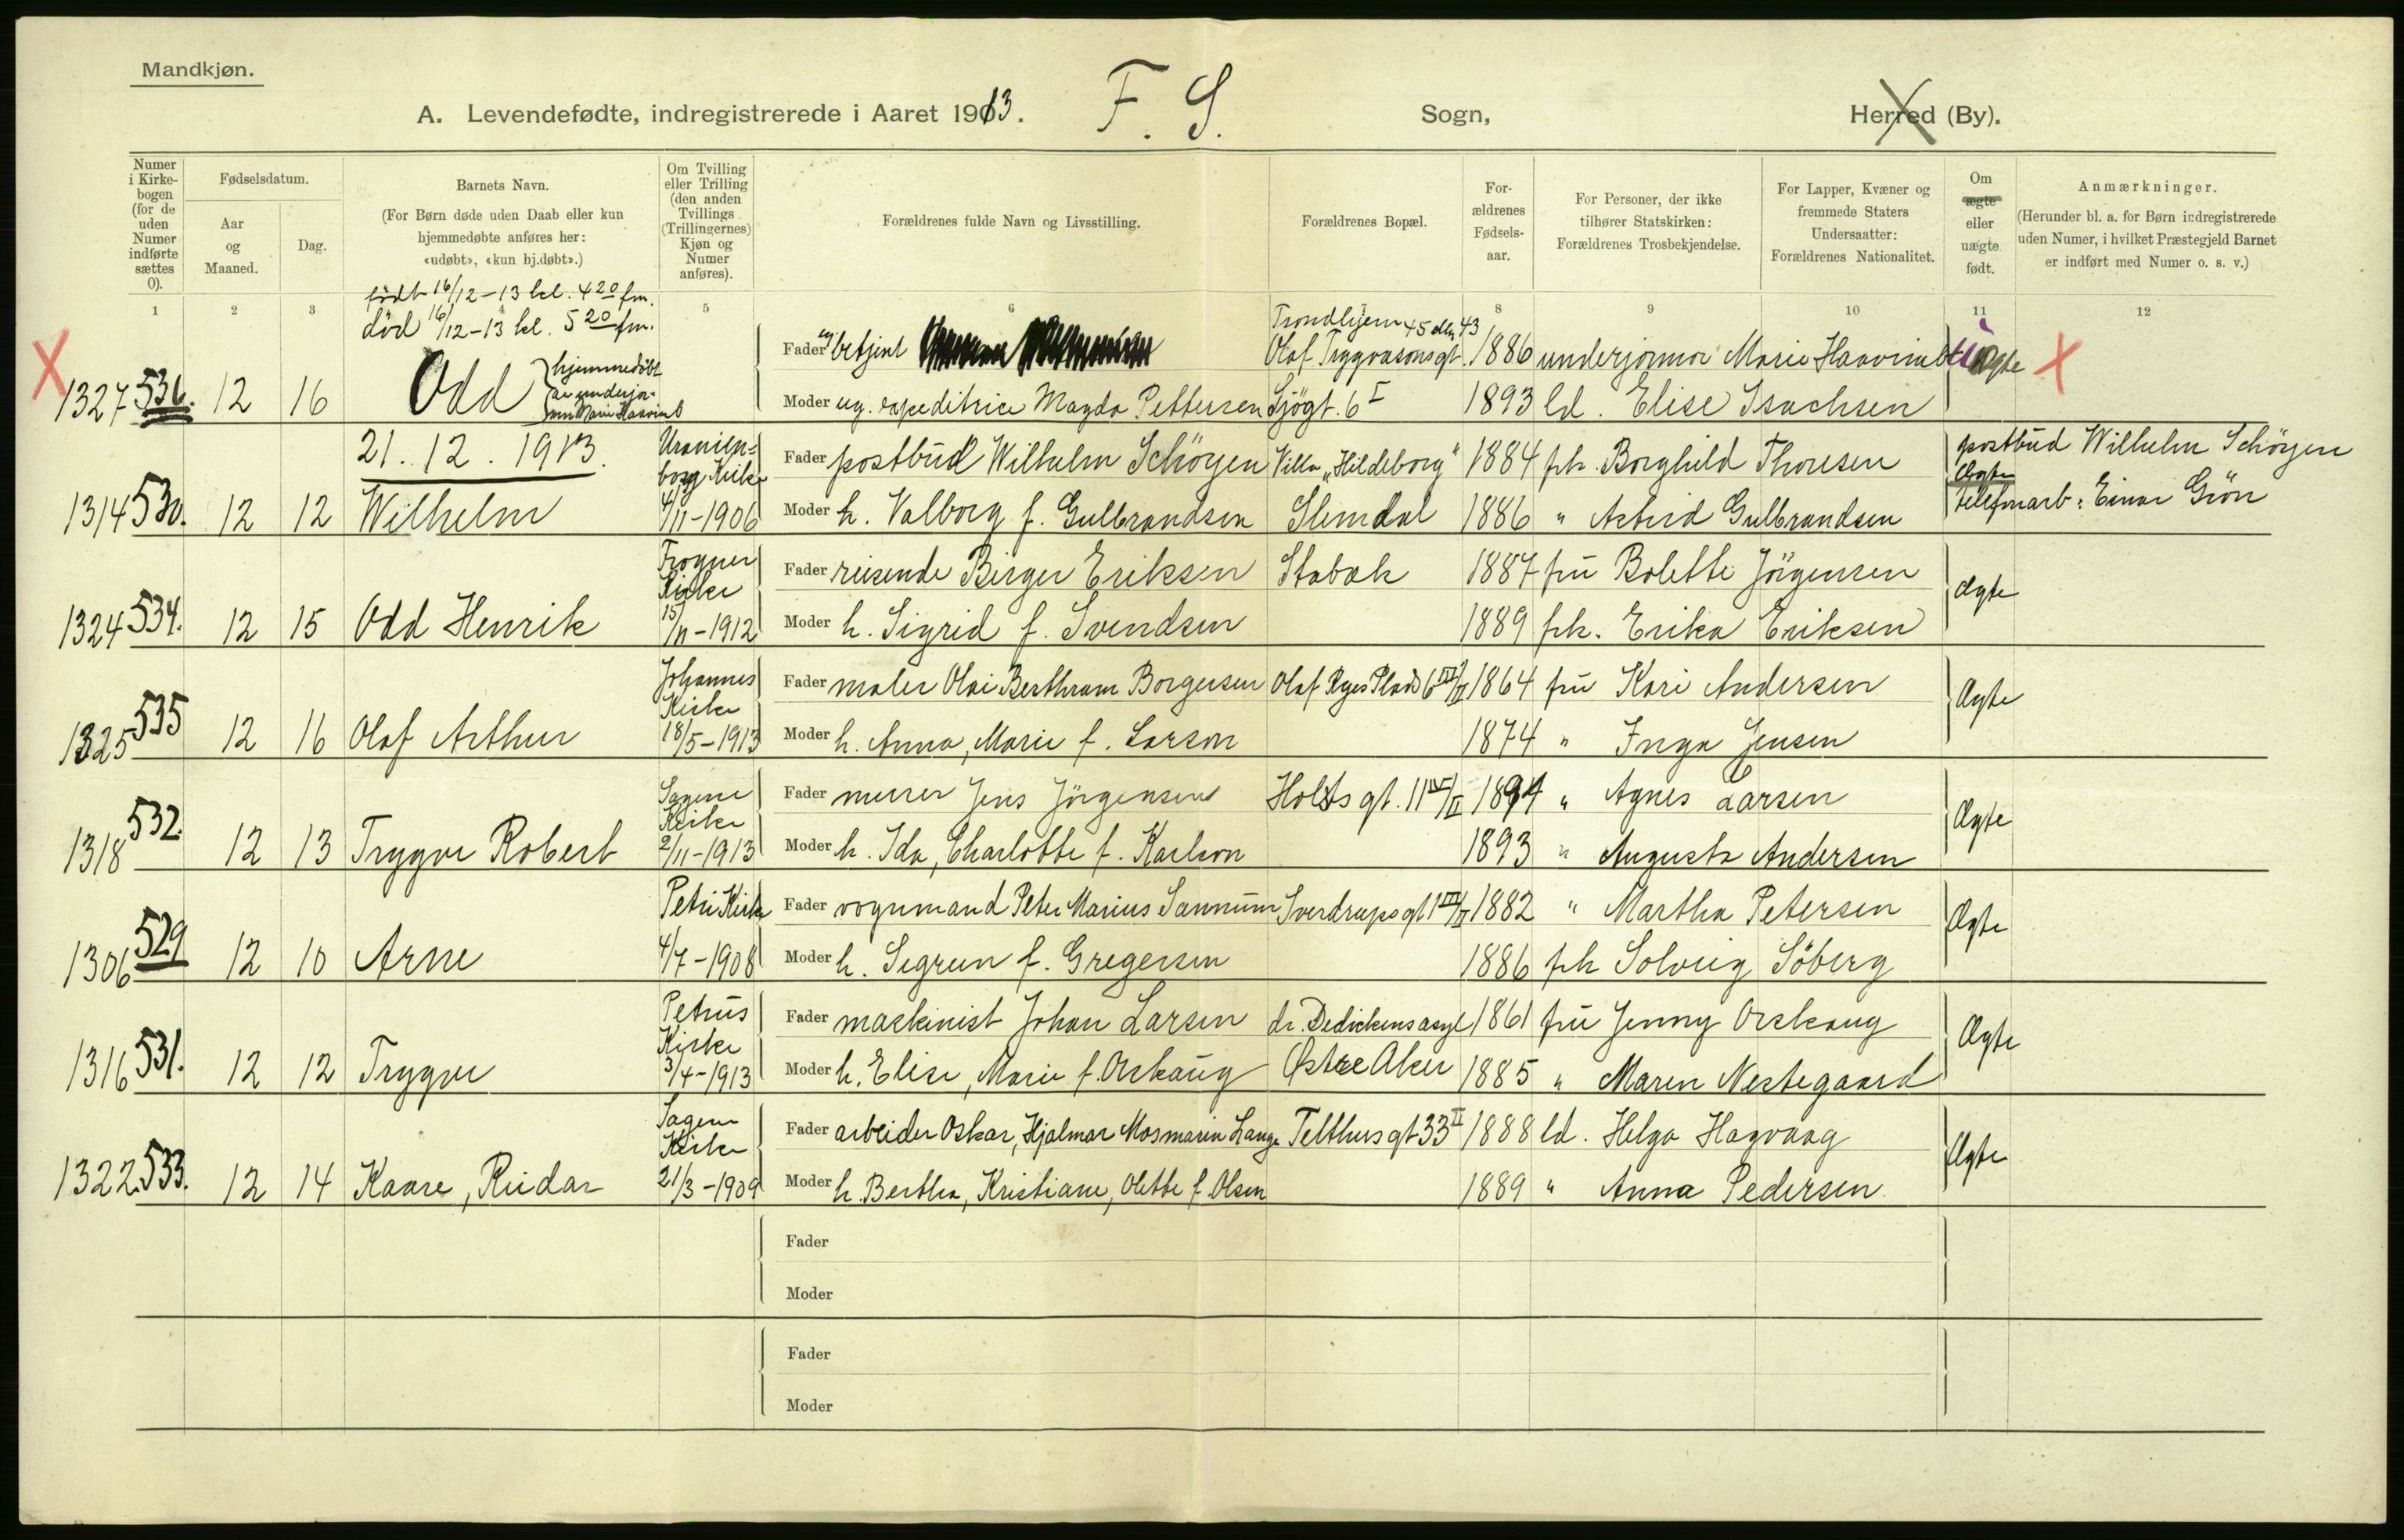 Mandkjøn.
A. Levendefødte, indregistrerede i Aaret 1913. F. S. Sogn, Herred (By).
Numer i Kirkebogen (for de uden Numer indførte sættes 0).
Fødselsdatum.
Aar og Maaned.
Dag.
Barnets Navn.
(For Børn døde uden Daab eller kun hjemmedøbte anføres her: «udøbt», «kun hj.døbt».)
Om Tvilling eller Trilling (den anden Tvillings (Trillingernes) Kjøn og Numer anføres).
Forældrenes fulde Navn og Livsstilling.
Forældrenes Bopæl.
Forældrenes Fødselsaar.
For Personer, der ikke tilhører Statskirken: Forældrenes Trosbekjendelse.
For Lapper, Kvæner og fremmede Staters Undersaatter: Forældrenes Nationalitet.
Om ægte eller uægte født.
Anmærkninger.
(Herunder bl. a. for Børn indregistrerede uden Numer, i hvilket Præstegjeld Barnet er indført med Numer o. s. v.)
1 2 3 5 6 8 9 10 11 12
født 16/12-13 kl. 4 20 fm.
död 16/12-13 kl. 5 20 fm.
Trondhjem 45 43
Fader ug. betjent Olaf Tryggvasonsgt. 1886 underjormor Marie Haavimb uægte
X 1327 536. 12 16 Odd hjemmedöbt av underjor- mor Marie Haavimb X
Moder ug. expeditrice Magda Pettersen Sjögt. 6 I 1893 ld. Elise Isachsen
21.12.1913. Uranienborg Kirke
Fader postbud Wilhelm Schöyen Villa "Hildeborg" 1884 frk. Borghild Thoresen postbud Wilhelm Schöyen
Ægte
1314 530. 12 12 Wilhelm 4/11-1906 Moder h. Valborg f. Gulbrandsen Slemdal 1886 " Astrid Gulbrandsen telefonarb: Einar Grön
Frogner Kirke
Fader reisende Birger Eriksen Stabæk 1887 fru Bolette Jörgensen Ægte
1324 534. 12 15 Odd Henrik 15/11-1912 Moder h. Sigrid f. Svendsen 1889 frk. Erika Eriksen
Johannes Kirke
Fader maler Olai Berthram Borgersen Olaf Ryes Plads 6 III/II 1864 fru Kari Andersen Ægte
1325 535 12 16 Olaf Arthur 18/5-1913 Moder h. Anna, Marie f. Larson 1874 " Inga Jensen
Sagene Kirke
Fader murer Jens Jörgensen Holsts gt. 11 IV/II 1894 " Agnes Larsen Ægte
1318 532. 12 13 Trygve Robert 2/11-1913 Moder h. Ida, Charlotte f. Karlson 1893 " Augusta Andersen
Petri Kirke
Fader vognmand Peter Marius Sannum Sverdrupsgt 1 III/II 1882 " Martha Petersen Ægte
1306 529 12 10 Arne 4/7-1908 Moder h. Segrun f. Gregersen 1886 frk Solveig Söberg
Petrus Kirke
Fader maskinist Johan Larsen dr. Dedichens asyl 1861 fru Jenny Orskaug Ægte
1316 531. 12 12 Trygve 3/4-1913 Moder h. Elise, Marie f. Orskaug Østre Aker 1885 " Maren Nestegaard
Sagene Kirke
Fader arbeider Oskar, Hjalmar Mosmarin Lange Telthusgt 33 II 1888 ld. Helga Hagvaag Ægte
1322 533. 12 14 Kaare, Reidar 21/3-1909 Moder h. Bertha, Kristiane, Olette f. Olsen 1889 " Anna Pedersen
Fader
Moder
Fader
Moder